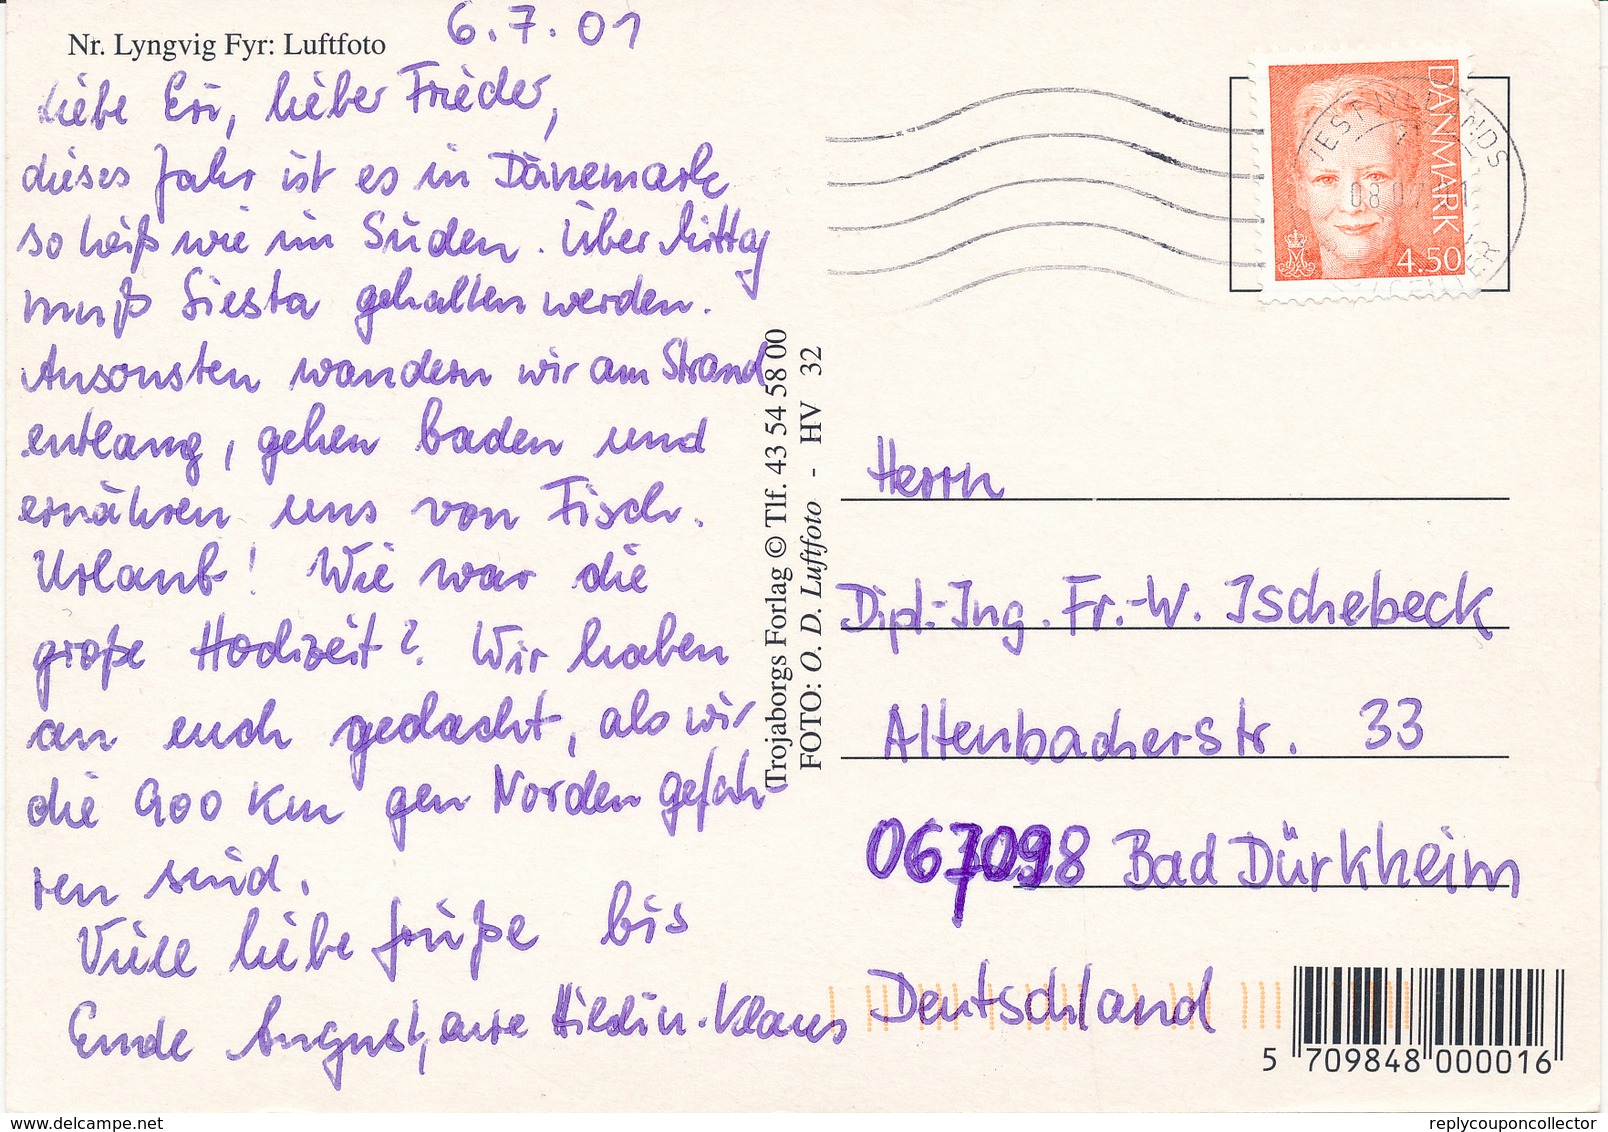 Nr. Lyngvig Fyr: Luftfoto
6.7.01
Liebe Eri, lieber Frieder,
dieses Jahr ist es in Dänemark
so heiß wie im Süden. Über Mittag
muß Siesta gehalten werden.
Ansonsten wandern wir am Strand
entlang, gehen baden und
ernähren uns von Fisch.
Urlaub! Wie war die
große Hochzeit? Wir haben
an euch gedacht, als wir
die 900 km gen Norden gefah-
ren sind.
Viele liebe Grüße bis
Ende August, eure Hildin. Klaus
Trojaborgs Forlag © Tlf. 43 54 58 00
FOTO: O. D. Luftfoto - HV 32
DANMARK
4.50
08.07.01
Herrn
Dipl.-Ing. Fr.-W. Ischebeck
Altenbacherstr. 33
067098 Bad Dürkheim
Deutschland
5 709848 000016
delcampe.net
replycouponcollector